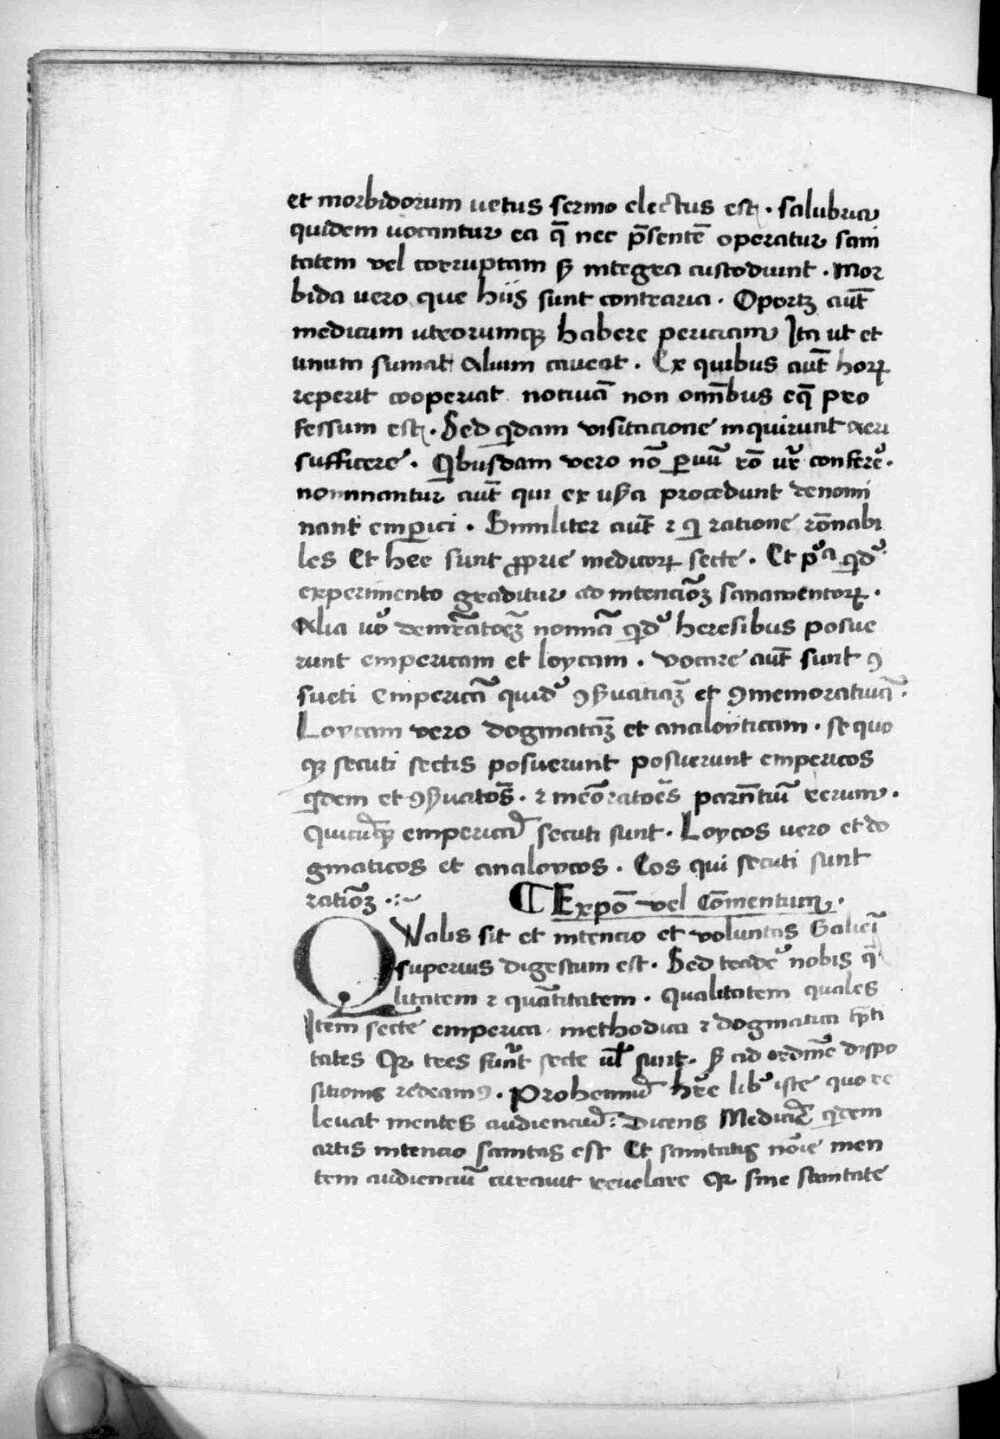 et morbidorum uetus sermo electus est. salubria
quidem uocantur ea q̄ nec p̄sentē operatur sani
tatem vel corruptam sꝫ integra custodiunt. Mor
bida uero que hiis sunt contraria. Oportꝫ aut̄
medicum utrorumqꝫ habere periciam Ita ut et
unum sumat Alium caueat. Ex quibus aut̄ horꝝ
reperit cooperiat nociuā non omībus eq̄ pro
fessum est. Sed qdam visitacione inquirunt
sufficere. Qbusdam vero nō ꝑuū rō ur̄ conferre.
nominantur aut̄ qui ex procedunt denomi
nant emꝑici. Similiter aut̄ ⁊ qi ratione rōnabi
les Et hee sunt ꝓprie medicorꝝ secte. Et
experimento graditur ad intenciōꝫ sanamentorꝝ.
Alia uo nominā heresibus posue
runt empericam et loycam. vocare aut̄ sunt ꝯ
sueti empericā quidē et ꝯmemoratiuā.
Loycam vero dogmatcāꝫ et analoyticam. se quo
qꝫ secuti sectis posuerunt posuerunt empericos
qdem et ⁊ rerum.
emperica secuti sunt. Loycos uero et do
gmaticos et analoycos. Eos qui secuti sunt
ratiōꝫ .:~ ¶ Expō vel Cōmentum.
QValis sit et intencio et voluntas Galieī
superius digestum est. Sed nobis q̄
litatem ⁊ quātitatem. Qualitatem quales
Item secte emperica methodica ⁊ dogmatica
tates Qꝛ tres secte ul sunt. sꝫ ad ordinē dispo
sitionis redeamꝯ. Prohemiū libꝰ iste quo re
leuat mentes audienciū: Dicens Medicīe qdem
artis intencio sanitas est Et sanitatis noīe men
tem audienciū curauit reuelare Qꝛ sine sanitate